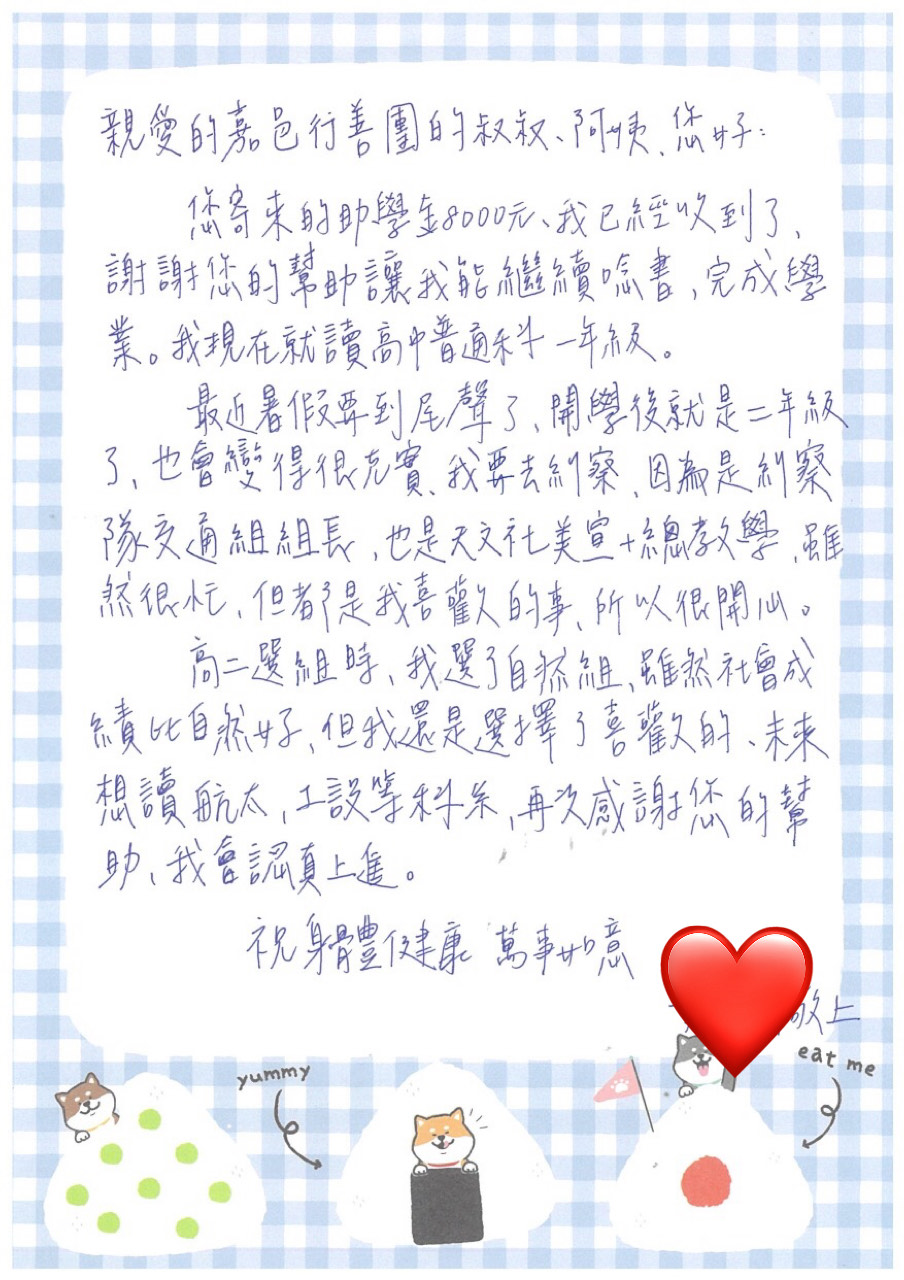 親愛的嘉邑行善團的叔叔、阿姨、您好:
您寄來的助學金8000元、我已經收到了、
謝謝您的幫助讓我能繼續唸書、完成學
業。我現在就讀高中普通科一年級。
最近暑假要到尾聲了、開學後就是二年級
了、也會變得很充實、我要去糾察、因為是糾察
隊交通組組長、也是天文社美宣+總教學、雖
然很忙、但都是我喜歡的事、所以很開心。
高二選組時、我選了自然組、雖然社會成
績比自然好、但我還是選擇了喜歡的、未來
想讀航太、工設等科系、再次感謝您的幫
助、我會認真上進。
祝身體健康 萬事如意
敬上
yummy
eat me